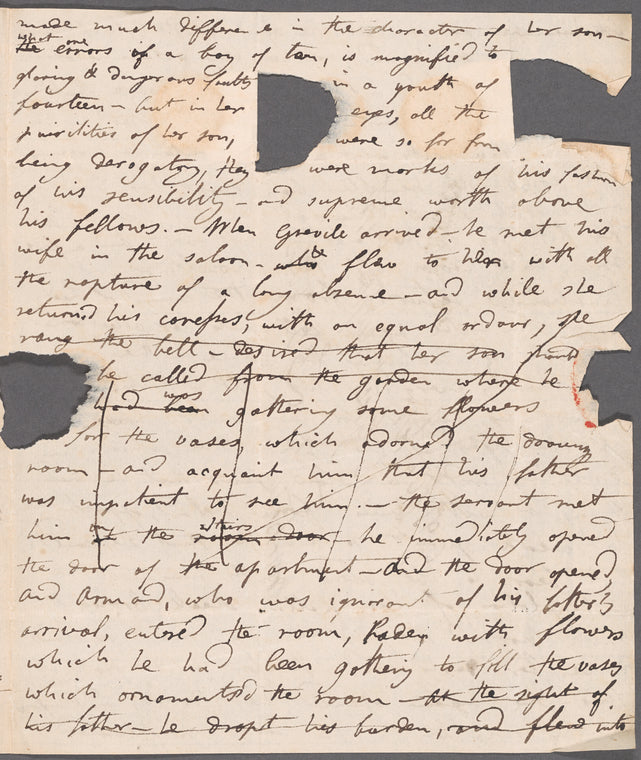 made much difference in the character of her son—
what are
The errors of a boy of ten, is magnified to
glaring & dangerous faults in a youth of
fourteen — but in her eyes, all the
puirilities of her son, were so far from
being derogatory, they were marks of his fashion
of his sensibility — and supreme worth above
his fellows. — When Grevile arrived — he met his
wife in the saloon — who flew to her with all
the rapture of a long absence — and while she
returned his caresses, with an equal ardour, she
rang the bell — desired that her son should
be called from the garden where he
was
had been gathering some flowers
for the vases, which adorned the drawing
room — and acquaint him that his father
was impatient to see him. — the servant met
stairs
him on the room door — he immediately opened
the door of the apartment — and the door opened,
and Armand, who was ignorant of his father's
arrival, entered the room, laden with flowers
which he had been gathering to fill the vases
which ornamented the room — At the sight of
his father — he dropt his burden, and flew into